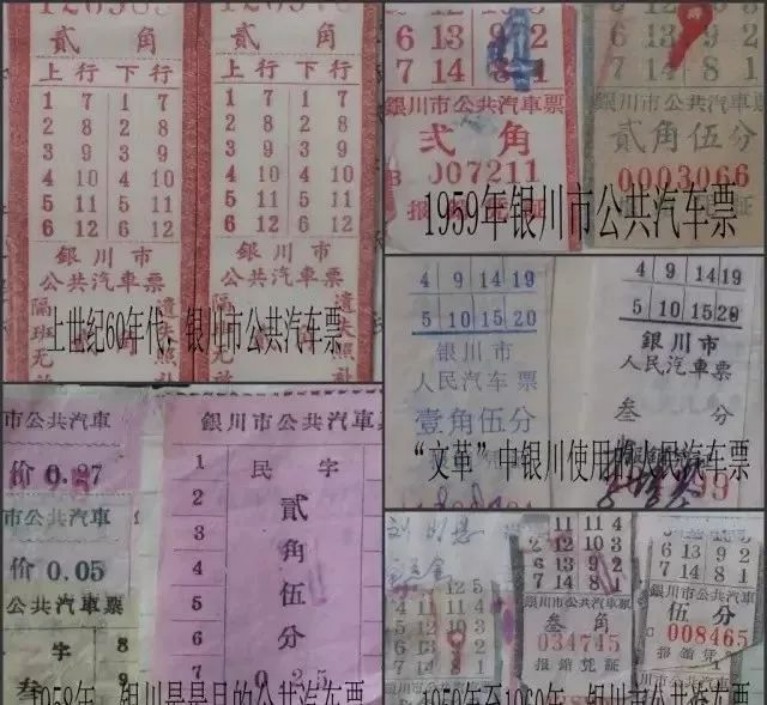 126985
贰角
上行下行
1 7 1 7
2 8 2 8
3 9 3 9
4 10 4 10
5 11 5 11
6 12 6 12
銀川市
公共汽車票
隔班无
遗失照补
贰角
上行下行
1 7 1 7
2 8 2 8
3 9 3 9
4 10 4 10
5 11 5 11
6 12 6 12
銀川市
公共汽車票
隔班无
遗失照补
上世纪60年代，银川市公共汽车票
6 13 9 2
7 14 8 1
銀川市公共汽車票
弍角
B 007211
6 13 9 2
7 14 8 1
銀川市公共汽車票
贰角伍分
0003066
1959年银川市公共汽车票
4 9 14 19
5 10 15 20
银川市
人民汽车票
壹角伍分
4 9 14 19
5 10 15 20
銀川市
人民汽車票
叁分
“文革”中银川使用的人民汽车票
市公共汽車
价 0.27
市公共汽車
价 0.05
公共汽車票
字 8
叁 9
銀川市公共汽車
民字
贰角伍分
1
2
3
4
5
6
7
025
1958年，银川
的公共汽车票
12 5
4 11 11 4
5 12 10 3
6 13 9 2
7 14 8 1
銀川市公共汽車票
11 11 4
2 12 10 3
6 13 9 2
7 14 8 1
銀川市公共汽車票
叁角
034745
报销凭证
6 13 9 2
7 14 8 1
銀川市公共汽車
伍分
008465
报销凭
川市公共汽車
1959年至1960年，银川市公共汽车票